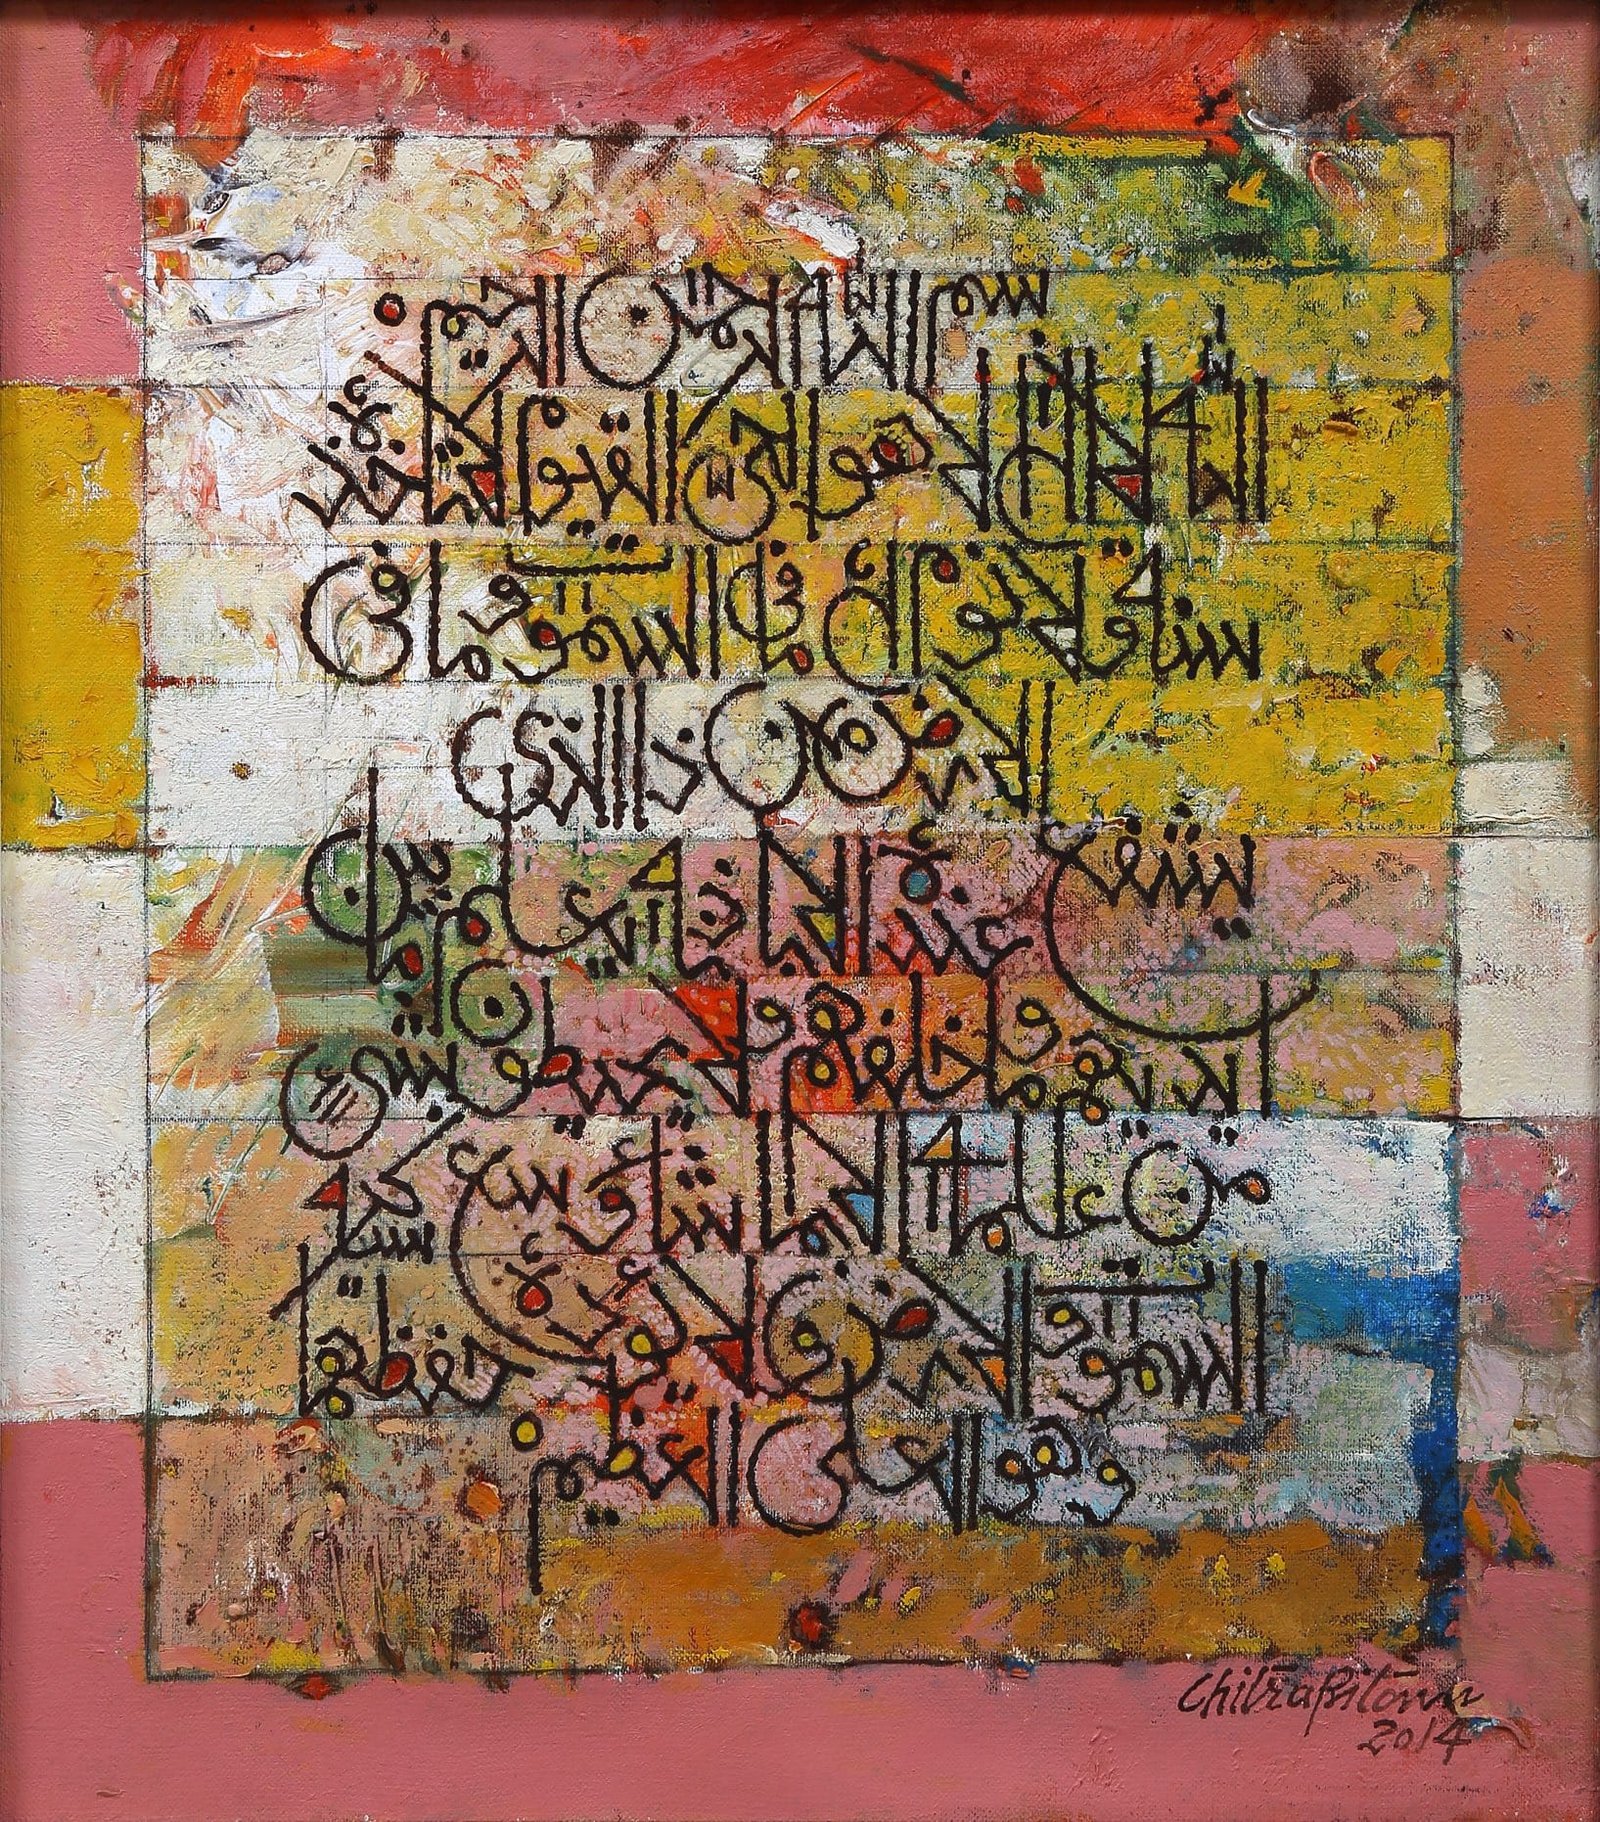 بسم الله الرحمن الرحيم
الله لا إله إلا هو الحي القيوم لا تأخذه
سنة ولا نوم له ما في السموت وما في
الأرض من ذا الذي
يشفع عنده إلا بإذنه يعلم ما بين
أيديهم وما خلفهم ولا يحيطون بشيء
من علمه إلا بما شاء وسع كرسيه
السموت والأرض ولا يؤده حفظهما
وهو العلي العظيم
2014